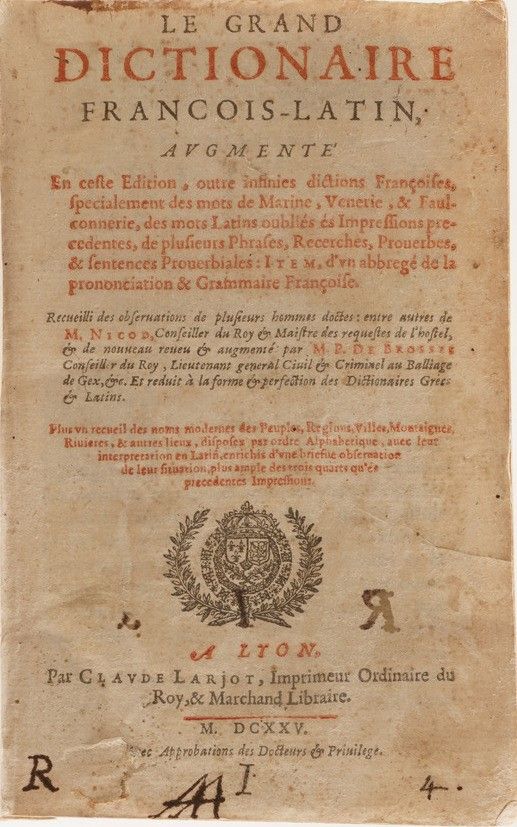 LE GRAND
DICTIONAIRE
FRANCOIS-LATIN,
AVGMENTE'
En ceste Edition, outre infinies dictions Françoises,
specialement des mots de Marine, Venerie, & Faul-
connerie, des mots Latins oubliés és Impressions pre-
cedentes, de plusieurs Phrases, Recerches, Prouerbes,
& sentences Prouerbiales: ITEM, d'vn abbregé de la
prononciation & Grammaire Françoise.
Recueilli des obseruations de plusieurs hommes doctes: entre autres de
M. NICOD, Conseiller du Roy & Maistre des requestes de l'hostel,
& de nouueau reueu & augmenté par M. P. DE BROSSES
Conseiller du Roy, Lieutenant general Ciuil & Criminel au Balliage
de Gex, &c. Et reduit à la forme & perfection des Dictionaires Grecs
& Latins.
Plus vn recueil des noms modernes des Peuples, Regions, Villes, Montaignes,
Riuieres, & autres lieux, disposez par ordre Alphabetique, auec leur
interpretation en Latin, enrichis d'vne briefue obseruation
de leur situation, plus ample des trois quarts qu'és
precedentes Impressions.
I R
A LYON,
Par CLAVDE LARJOT, Imprimeur Ordinaire du
Roy, & Marchand Libraire.
M. DCXXV.
Auec Approbations des Docteurs & Priuilege.
R I 4.